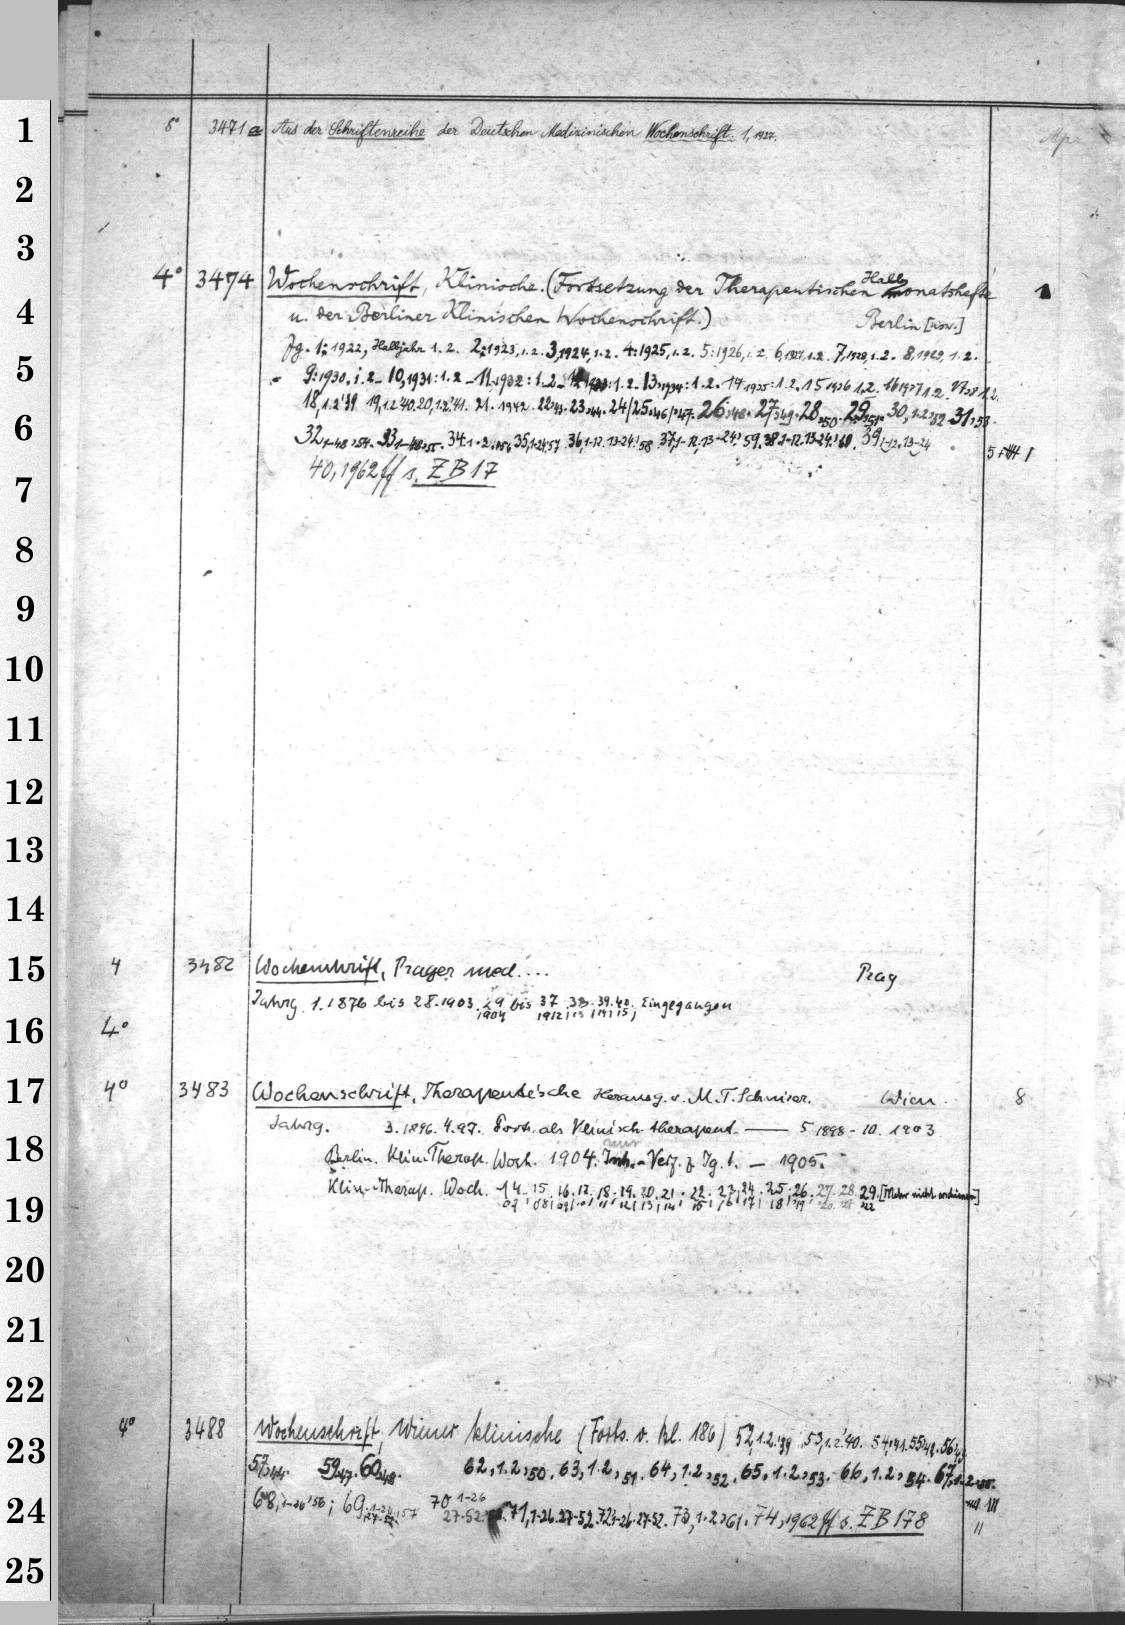 1
8° 3471 a Aus der Schriftenreihe der Deutschen Medizinischen Wochenschrift. 1, 1927.
2
3
Halb
4° 3474 Wochenschrift, Klinische. (Fortsetzung der Therapeutischen monatshefte 1
4
u. der Berliner Klinischen Wochenschrift.) Berlin [usw.]
Jg. 1: 1922, Halbjahr 1. 2. 2: 1923, 1. 2. 3, 1924, 1. 2. 4: 1925, 1. 2. 5: 1926, 1. 2. 6, 1927, 1. 2. 7, 1928, 1. 2. 8, 1929, 1. 2.
5
9: 1930. 1. 2 - 10, 1931: 1. 2 - 11, 1932: 1. 2. 1. 2. 13, 1934: 1. 2. 14 1935: 1. 2. 15 1936 1. 2. 16 1937 1. 2.
18, 1. 2 '39 19, 1. 2 '40. 20, 1. 2. '41. 21. 1942. 22, 43. 23, 44. 24/25, 46/47. 26, 48. 27, 49. 28, 50. 29, 51. 30, 1. 2, 52 31, 53.
6
32, 33, 34, 1. 2. 35, 1-24, 57 36, 1-12. 13-24, 58 37, 1-12, 13-24, 59. 38, 1-12. 13-24, 60. 39, 1-12. 13-24
40, 1962 ff s. ZB 17
7
8
9
10
11
12
13
14
15
4 3482 Wochenschrift, Prager med.... Prag
Jahrg. 1. 1876 bis 28. 1903. 29 bis 37 38. 39. 40. Eingegangen
1904 1912 13 14 15
16
4°
17
4° 3483 Wochenschrift, Therapeutische Herausg. v. M. T. Schnirer. Wien. 8
Jahrg. 3. 1896. 4. 97. Forts. als Klinisch-therapeut. — 5 1898 - 10. 1903
18
Berlin. Klin. Therap. Woch. 1904. nur Inh.- Verz. z Jg. 1. — 1905.
Klin.-Therap. Woch. 14. 15. 16. 17. 18. 19. 20. 21. 22. 23. 24. 25. 26. 27. 28. 29. [Mehr nicht erschienen]
19
07 08 09 10 11 12 13 14 15 16 17 18 19 20 21 22
20
21
22
4° 3488 Wochenschrift, Wiener klinische (Forts. v. kl. 186) 52, 1. 2. '39 53, 1. 2. '40. 54, 41. 55, 42. 56, 43
23
57, 44. 59, 47. 60, 48. 62, 1. 2, 50. 63, 1. 2, 51. 64, 1. 2, 52. 65, 1. 2, 53. 66, 1. 2, 54. 67, 1. 2, 55.
68, 1-26 '56; 69, 57 70 1-26
24
27-52 71, 1-26. 27-52. 72, 1-26. 27-52. 73, 1. 2, 61. 74, 1962 ff s. ZB 178
25